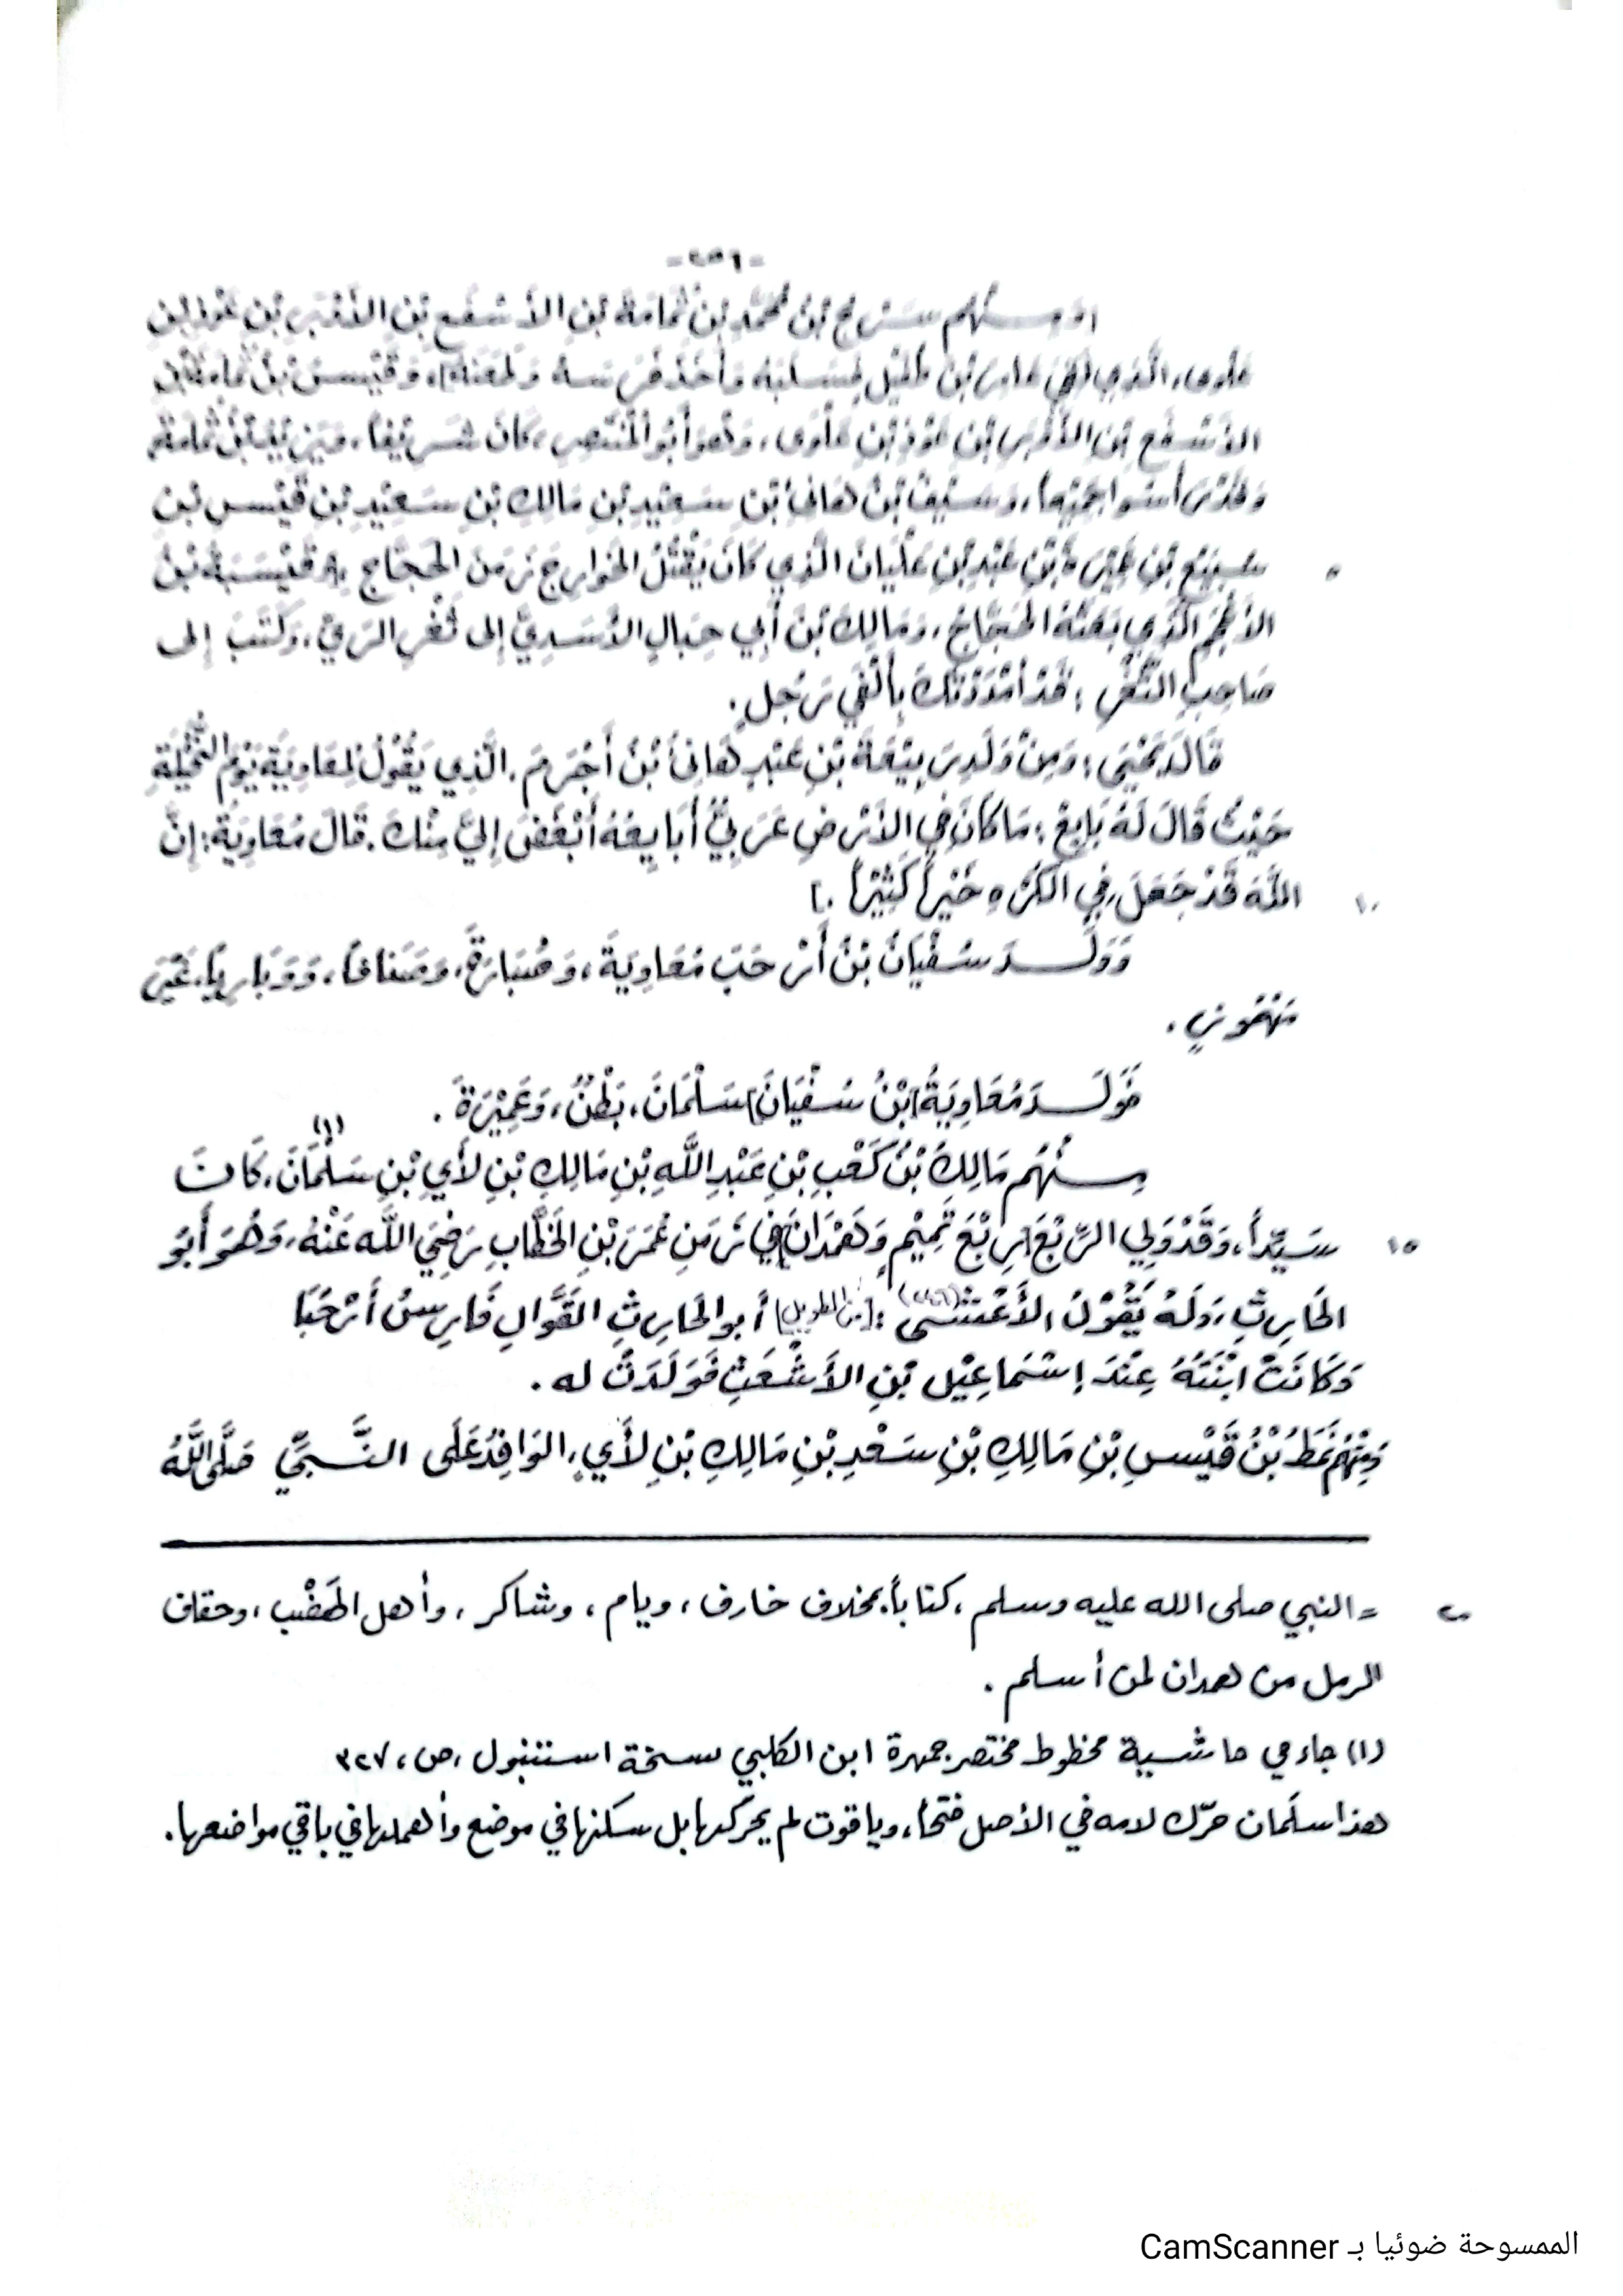 -٢٥٦-
سَرْحُ بْنُ مُحَمَّدِ بْنِ ثُمَامَةَ بْنِ الأَسْفَعِ بْنِ الأَوْبَرِ بْنِ
الَّذِي لَقِيَ عَامِرَ بْنَ فَرَسَهُ وَقَيْسُ بْنُ
الأَسْفَعِ بْنِ الأَوْبَرِ بْنِ عَلْوَى، وَهُوَ أَبُو المُنْتَصِرِ، كَانَ شَرِيْفاً،
وَسَيْفُ بْنُ هَانِئِ بْنِ سَعِيْدِ بْنِ مَالِكِ بْنِ سَعِيْدِ بْنِ قَيْسِ بْنِ
٥ بْنِ عَبْدِ بْنِ عَلْيَانَ الَّذِي كَانَ يَقْتُلُ الخَوَارِجَ زَمَنَ الحَجَّاجِ
الَّذِي بَعَثَهُ الحَجَّاجُ، وَمَالِكَ بْنَ أَبِي حِبَالٍ الأَسَدِيَّ إلى ثَغْرِ الرَّيِّ، وَكَتَبَ إلى
صَاحِبِ الثَّغْرِ: قَدْ أَمْدَدْتُكَ بِأَلْفَيْ رَجُلٍ.
قَالَ يَحْيَى: وَمِنْ وَلَدِ رَبِيْعَةَ بْنِ عَبْدٍ هَانِئُ بْنُ أَجْرَمَ، الَّذِي يَقُوْلُ لِمُعَاوِيَةَ يَوْمَ النُّخَيْلَةِ
حَيْثُ قَالَ لَهُ بَايِعْ: مَا كَانَ فِي الأَرْضِ عَرَبِيٌّ أُبَايِعُهُ أَبْغَضَ إِلَيَّ مِنْكَ. قَالَ مُعَاوِيَةُ: إِنَّ
١٠ اللَّهَ قَدْ جَعَلَ فِي الكُرْهِ خَيْراً كَثِيْراً.]
وَوَلَـدَ سُفْيَانُ بْنُ أَرْحَبَ مُعَاوِيَةَ، وَصُبَارَةَ، وَمَنَافاً، وَوَبَارِيَا، غَيْرَ
مَهْمُوزٍ.
فَوَلَـدَ مُعَاوِيَةُ [بْنُ سُفْيَانَ] سَلْمَانَ، بَطْنٌ، وَعَمِيْرَةَ.
مِـنْهُم مَالِكُ بْنُ كَعْبِ بْنِ عَبْدِ اللَّهِ بْنِ مَالِكِ بْنِ لأْيِ بْنِ سَلْمَانَ(١)، كَانَ
١٥ سَيِّداً، وَقَدْ وَلِيَ الرَّبْعَ [رَبْعَ تَمِيْمٍ وَهَمْدَانَ] فِي زَمَنِ عُمَرَ بْنِ الخَطَّابِ رَضِيَ اللَّه عَنْهُ، وَهُوَ أَبُو
الحَارِثِ، وَلَهُ يَقُوْلُ الأَعْشَى: [من الطويل] أَبو الحَارِثِ القَوَّالِ فَارِسُ أَرْحَبَا
وَكَانَتْ ابْنَتُهُ عِنْدَ إِسْمَاعِيْلَ بْنِ الأَشْعَثِ فَوَلَدَتْ له.
وَمِنْهُمْ نَمَطُ بْنُ قَيْسِ بْنِ مَالِكِ بْنِ سَعْدِ بْنِ مَالِكِ بْنِ لأْيٍ، الوَافِدُ عَلَى النَّـبِيِّ صَلَّى اللَّهُ
٢٠ = النبي صلى الله عليه وسلم، كتاباً بمخلاف خارف، ويام، وشاكر، وأهل الهَضْب، وحقاف
الرمل من همدان لمن أسلم.
(١) جاء في حاشية مخطوط مختصر جمهرة ابن الكلبي نسخة استنبول، ص، ٣٢٧
هذا سلَمان حرّك لامه في الأصل فتحاً، وياقوت لم يحركها بل سكنها في موضع وأهملها في باقي مواضعها.
الممسوحة ضوئيا بـ CamScanner